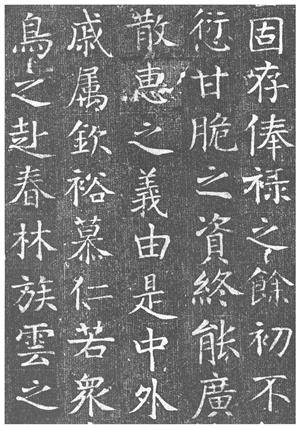 固存俸祿之餘初不
愆甘脆之資終能廣
散惠之義由是中外
戚属欽裕慕仁若衆
鳥之赴春林族雲之